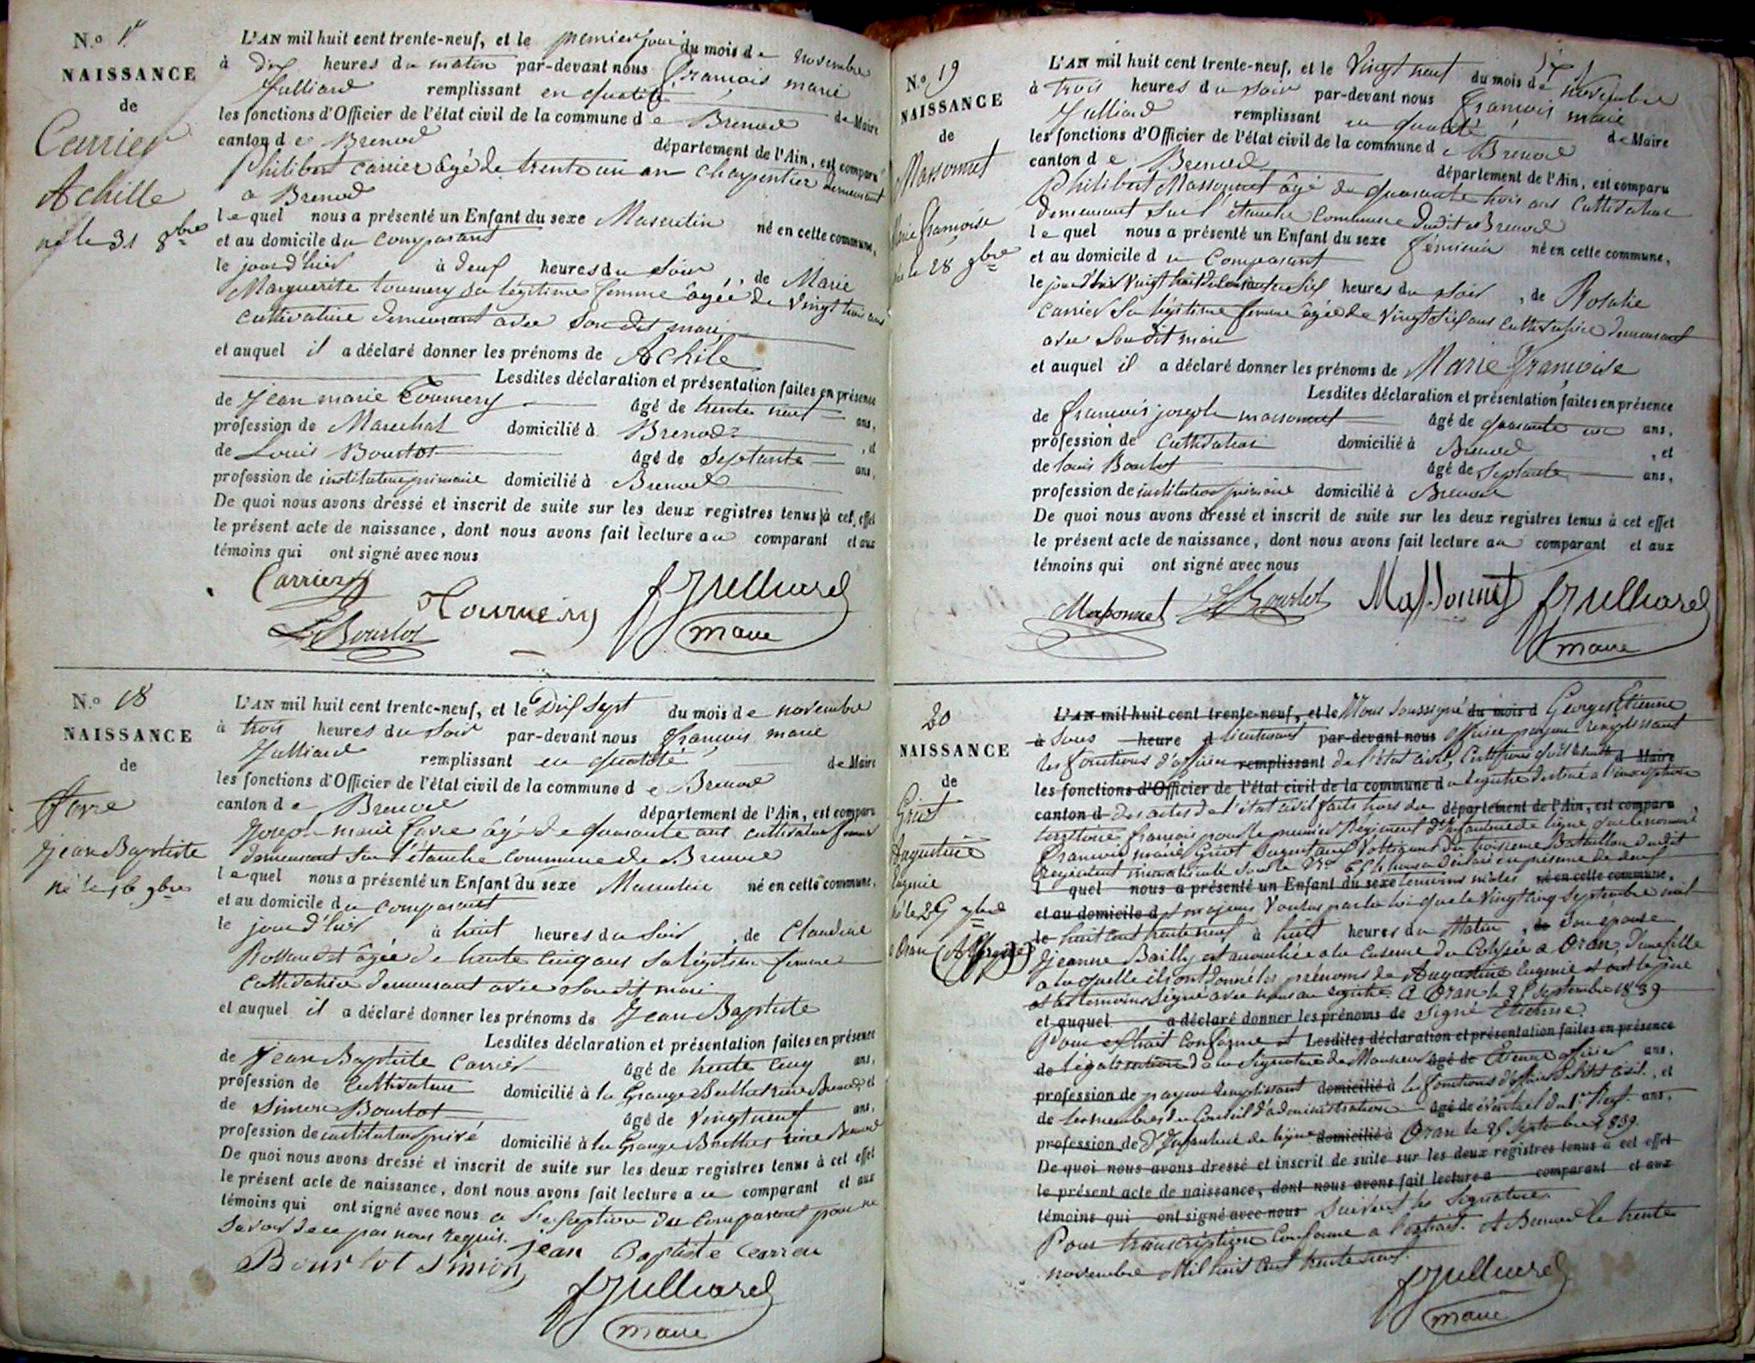 N.º 1
NAISSANCE
de
Carrier
Achille
né le 31 8bre
L'AN mil huit cent trente-neuf, et le premier jour du mois de novembre
à dix heures du matin par-devant nous François marie
Julliard remplissant en qualité de Maire
les fonctions d'Officier de l'état civil de la commune de Brenod
canton de Brenod département de l'Ain, est comparu
Philibert carrier âgé de trente un an charpentier demeurant
a Brenod
lequel nous a présenté un Enfant du sexe Masculin né en cette commune,
et au domicile du comparant
le jour d'hier à deux heures du soir, de Marie
Marguerite tournery sa légitime femme âgée de vingt trois ans
cultivatrice demeurant avec son dit mari
et auquel il a déclaré donner les prénoms de Achile
Lesdites déclaration et présentation faites en présence
de Jean marie Tournery âgé de trente neuf ans,
profession de Marechal domicilié à Brenod, et
de Louis Bourlot âgé de Septante ans,
profession de instituteur primaire domicilié à Brenod
De quoi nous avons dressé et inscrit de suite sur les deux registres tenus à cet effet
le présent acte de naissance, dont nous avons fait lecture au comparant et aux
témoins qui ont signé avec nous
Carrier Tournery fJulliard
L Bourlot maire
N.º 18
NAISSANCE
de
favre
Jean Baptiste
né le 16 9bre
L'AN mil huit cent trente-neuf, et le Dix Sept du mois de novembre
à trois heures du soir par-devant nous François marie
Julliard remplissant en qualité de Maire
les fonctions d'Officier de l'état civil de la commune de Brenod
canton de Brenod département de l'Ain, est comparu
Joseph marie favre âgé de quarante ans cultivateur fermier
demeurant sur l'étanche commune de Brenod
lequel nous a présenté un Enfant du sexe Masculin né en cette commune,
et au domicile du comparant
le jour d'hier à huit heures du soir, de Claudine
âgée de trente cinq ans sa légitime femme
cultivatrice demeurant avec son dit mari
et auquel il a déclaré donner les prénoms de Jean Baptiste
Lesdites déclaration et présentation faites en présence
de Jean Baptiste Carrier âgé de trente cinq ans,
profession de Cultivateur domicilié à la Grange Brenod et
de Simon Bourlot âgé de Vingt neuf ans,
profession de instituteur privé domicilié à la Grange Brenod
De quoi nous avons dressé et inscrit de suite sur les deux registres tenus à cet effet
le présent acte de naissance, dont nous avons fait lecture au comparant et aux
témoins qui ont signé avec nous a l'exception du comparant pour ne
savoir de ce par nous requis.
Bourlot Simon Jean Baptiste Carrier
fJulliard
maire
N.º 19
NAISSANCE
de
Massonnet
Marie françoise
née le 28 9bre
L'AN mil huit cent trente-neuf, et le Vingt neuf du mois de novembre
à trois heures du soir par-devant nous françois marie
Julliard remplissant en qualité de Maire
les fonctions d'Officier de l'état civil de la commune de Brenod
canton de Brenod département de l'Ain, est comparu
Philibert Massonnet âgé de quarante trois ans cultivateur
demeurant sur l'étanche commune dudit Brenod
lequel nous a présenté un Enfant du sexe féminin né en cette commune,
et au domicile du comparant
le jour d'hier Vingt huit heures du soir, de Rosalie
Carrier sa légitime femme âgée de vingt six ans cultivatrice demeurant
avec son dit mari
et auquel il a déclaré donner les prénoms de Marie françoise
Lesdites déclaration et présentation faites en présence
de françois joseph massonnet âgé de quarante un ans,
profession de cultivateur domicilié à Brenod, et
de louis Bourlot âgé de septante ans,
profession de instituteur primaire domicilié à Brenod
De quoi nous avons dressé et inscrit de suite sur les deux registres tenus à cet effet
le présent acte de naissance, dont nous avons fait lecture au comparant et aux
témoins qui ont signé avec nous
Massonnet L Bourlot Massonnet fJulliard
maire
20
NAISSANCE
de
Augustine
Eugenie
né le 25 7bre
a Oran (Affrique)
L'AN mil huit cent trente-neuf, et le Nous soussigné du mois d Georges Etienne
à Sous heure d lieutenant par-devant nous officier payeur remplissant
les fonctions d'officier remplissant de l'état civil, Certifions qu'il résulte d Maire
les fonctions d'Officier de l'état civil de la commune du registre destiné a l'inscription
canton d des actes de l'état civil faits hors du département de l'Ain, est comparu
territoire français pour le premier Régiment d'infanterie de ligne que le nommé
françois marie Voltigeur du troisieme Bataillon dudit
Régiment immatriculé sous le No a déclaré en présence de deux
l quel nous a présenté un Enfant du sexe temoins males né en cette commune,
et au domicile d majeurs Voulus par la loi que le Vingt cinq Septembre mil
le huit cent trente neuf à huit heures du Matin, de son epouse
Jeanne Bailly est accouchée a la Caserne du Colysée a Oran, d'une fille
a laquelle ils ont donné les prénoms de Augustine Eugenie et ont le père
et les temoins signé avec nous au registre A Oran le 25 Septembre 1839
et auquel a déclaré donner les prénoms de signé Etienne.
Pour extrait conforme et Lesdites déclaration et présentation faites en présence
de légalisation de la signature de Monsieur âgé de Etienne officier ans,
profession de payeur remplissant domicilié à les fonctions d'officier de l'Etat civil, et
de Les membres du Conseil d'administration âgé de éventuel du 1er Regt. ans,
profession de D'Infanterie de ligne domicilié à Oran le 25 Septembre 1839.
De quoi nous avons dressé et inscrit de suite sur les deux registres tenus à cet effet
le présent acte de naissance, dont nous avons fait lecture a comparant et aux
témoins qui ont signé avec nous Suivent les Signatures.
Pour transcription Conforme a l'extrait. A Brenod le trente
novembre Mil huit Cent trente neuf.
fJulliard
maire